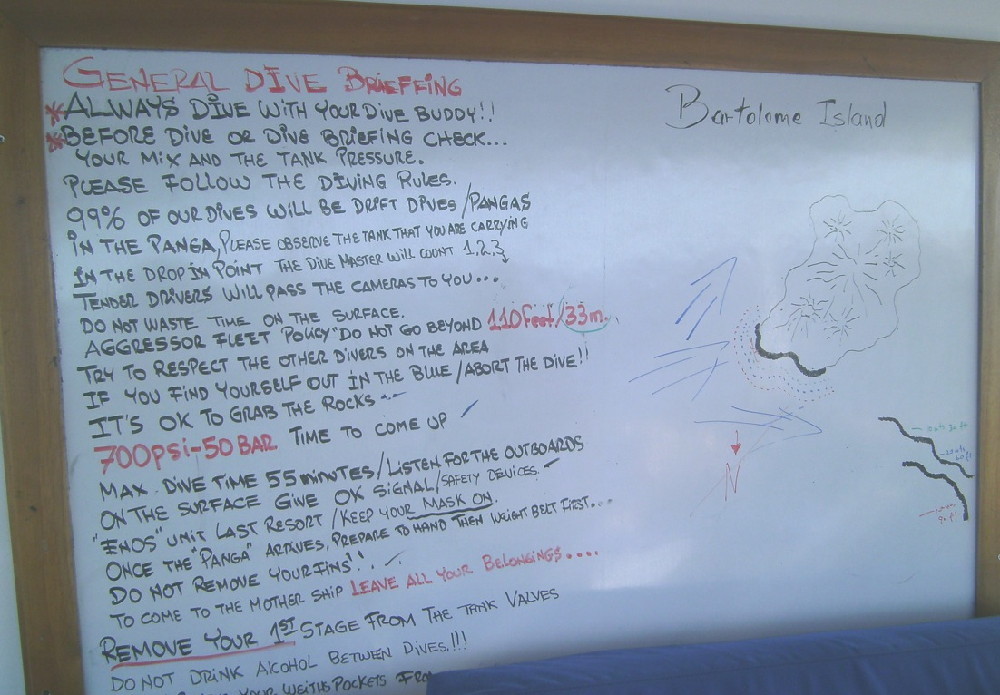 GENERAL DIVE BRIEFFING
*ALWAYS DIVE WITH YOUR DIVE BUDDY!!
*BEFORE DIVE OR DIVE BRIEFING CHECK...
YOUR MIX AND THE TANK PRESSURE.
PLEASE FOLLOW THE DIVING RULES.
99% OF OUR DIVES WILL BE DRIFT DIVES/PANGAS
IN THE PANGA, PLEASE OBSERVE THE TANK THAT YOU ARE CARRYING
IN THE DROP IN POINT THE DIVE MASTER WILL COUNT 1,2,3
TENDER DRIVERS WILL PASS THE CAMERAS TO YOU...
DO NOT WASTE TIME ON THE SURFACE.
AGGRESSOR FLEET "POLICY" DO NOT GO BEYOND 110 feet/33m.
TRY TO RESPECT THE OTHER DIVERS ON THE AREA
IF YOU FIND YOURSELF OUT IN THE BLUE/ABORT THE DIVE!!
IT'S OK TO GRAB THE ROCKS...
700psi-50 BAR TIME TO COME UP
MAX. DIVE TIME 55 minutes/LISTEN FOR THE OUTBOARDS
ON THE SURFACE GIVE OK SIGNAL/SAFETY DEVICES.
"ENOS" UNIT LAST RESORT/KEEP YOUR MASK ON.
ONCE THE "PANGA" ARRIVES, PREPARE TO HAND THEM WEIGHT BELT FIRST...
DO NOT REMOVE YOUR FINS!!
TO COME TO THE MOTHER SHIP LEAVE ALL YOUR BELONGINGS....
REMOVE YOUR 1ST STAGE FROM THE TANK VALVES
DO NOT DRINK ALCOHOL BETWEEN DIVES!!!
YOUR WEITHS POCKETS FROM
Bartolome Island
N